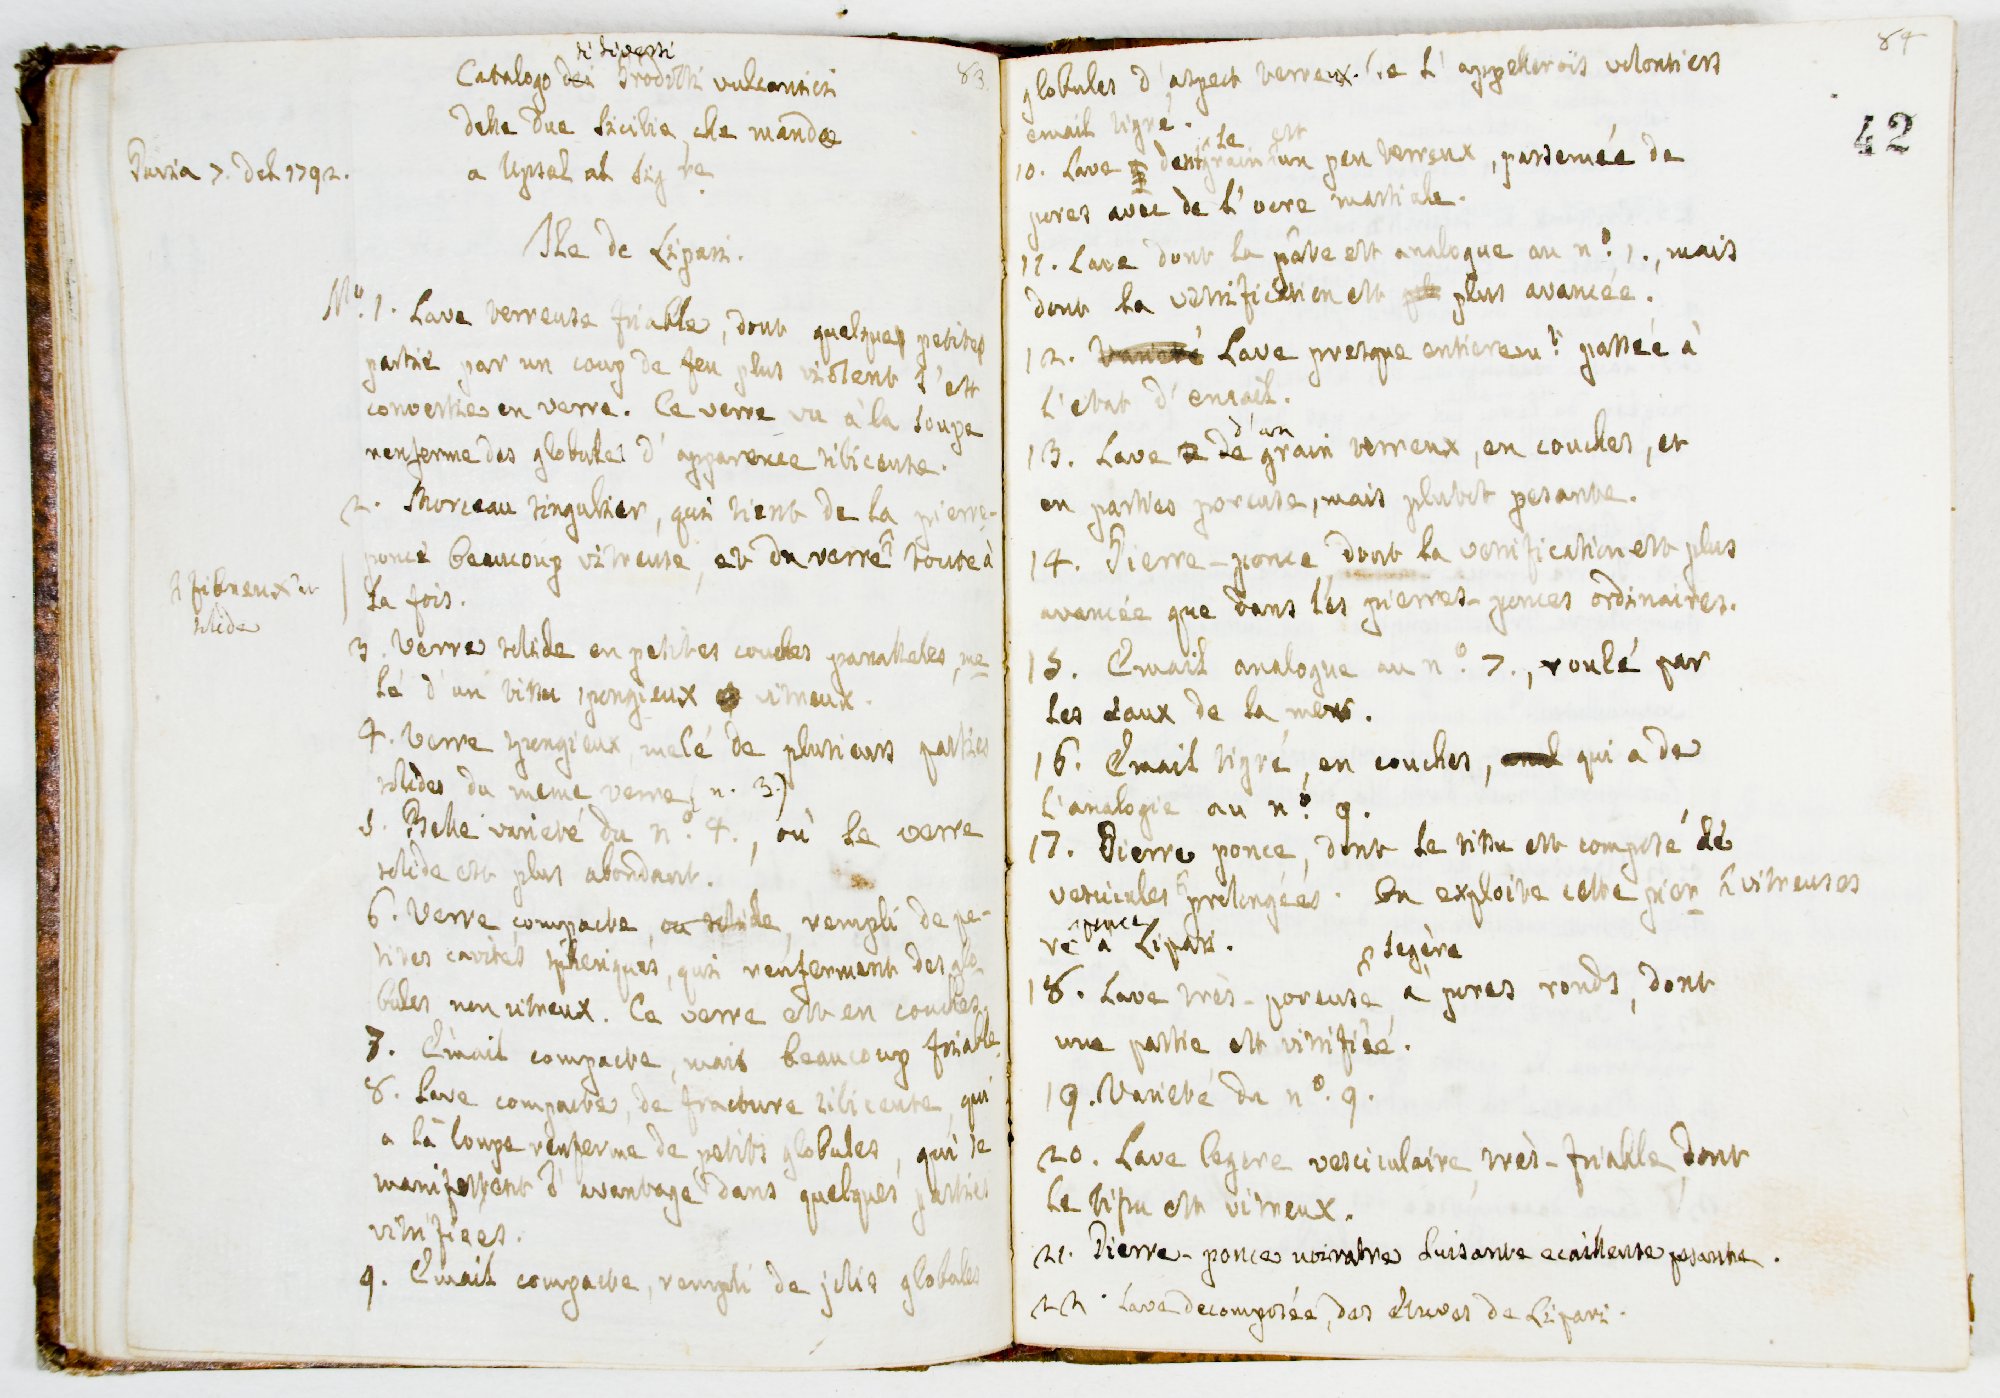 83
di diversi
Catalogo dei Prodotti vulcanici
delle Due Sicilie, che mando
a Upsal al Sig.re
Pavia 7. Del 1792.
Ile de Lipari.
No. 1. Lave verreuse friable, dont quelques petites
partie par un coup de feu plus violent s'est
convertie en verre. Ce verre vu à la loupe
renferme des globules d'apparence siliceuse.
2. Morceau singulier, qui tient de la pierre-
ponce beaucoup vitreuse, et du verre toute à
la fois.
fibreux et
solide
3. Verre solide en petites couches paralleles, me
lé d'un tissu spongieux vitreux.
4. Verre spongieux, melé de plusieurs parties
solides du meme verre (n. 3.)
5. Belle varieté du no. 4., où le verre
solide est plus abondant.
6. Verre compacte, ou solide, rempli de pe-
tites cavités spheriques, qui renferment des glo-
bules non vitreux. Ce verre est en couches.
7. Email compacte, mais beaucoup friable.
8. Lave compacte, de fracture siliceuse, qui
a la loupe renferme de petits globules, qui se
manifestent d'avantage dans quelques parties
vitrifiées.
9. Email compacte, rempli de jolis globules
84
42
globules d'aspect verreux. Je l'appellerois volontiers
email tigré.
le est
10. Lave dont grain un peu verreux, parsemée de
pores avec de l'ocre martiale.
11. Lave dont la pâte est analogue au no. 1., mais
dont la vetrification est plus avancée.
12. Varieté Lave presque entierem.t passée à
l'etat d'email.
d'un
13. Lave de grain verreux, en couches, et
en parties poreuse, mais plutot pesante.
14. Pierre-ponce, dont la vetrification est plus
avancée que dans les pierres-ponces ordinaires.
15. Email analogue au no. 7., roulé par
les eaux de la mer.
16. Email tigré, en couches, qui a de
l'analogie au no. 9.
17. Pierre ponce, dont le tissu est composé de
vesicules prolongées. On exploite cette pier vitreuses
ponce
re à Lipari.
legère
18. Lave très-poreuse, à pores ronds, dont
une partie est vitrifiée.
19. Varieté du no. 9.
20. Lave legere vesciculaire, très-friable, dont
le tissu est vitreux.
21. Pierre-ponce noiratre luisante ecailleuse pesante.
22. Lave decomposée, des étuves de Lipari.